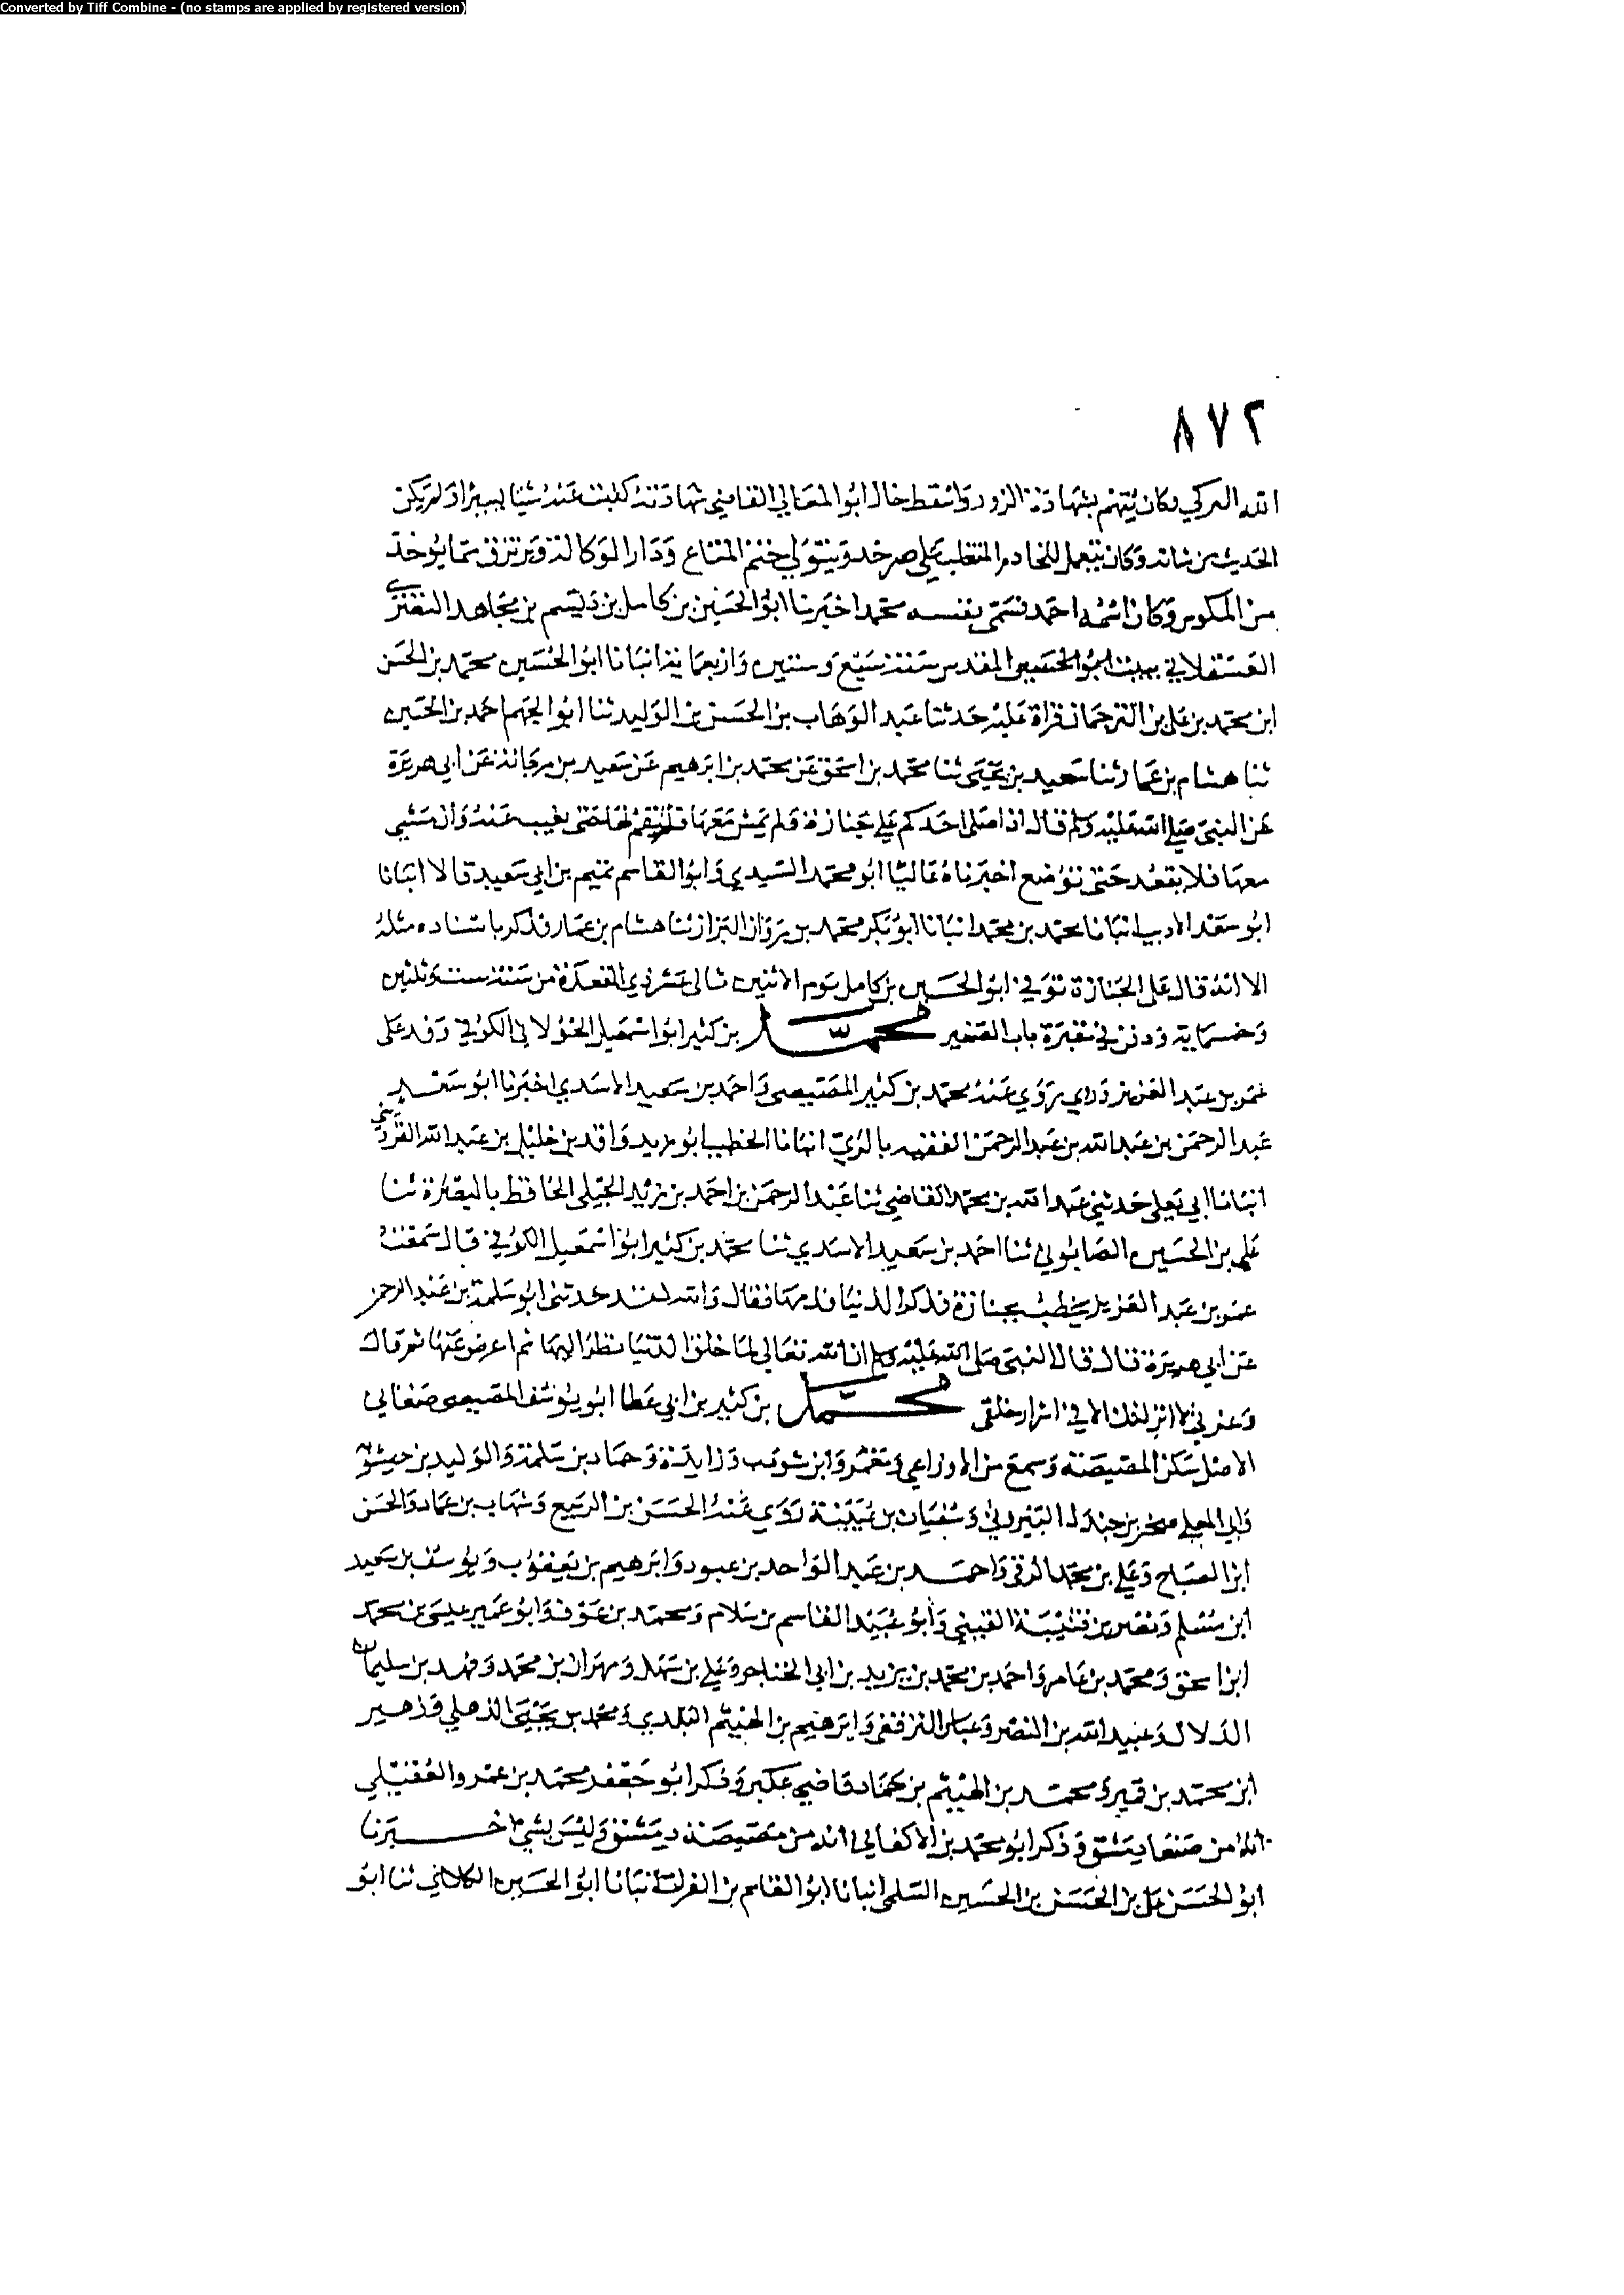 Converted by Tiff Combine - (no stamps are applied by registered version)
٨٧٢
الله التركي وكان يتهم بشهادة الزور واسقط خالد ابو المعالي القاضي شهادته كتبت عنه شيا يسيرا ولم يكن
الحديث من شانه وكان يتعمل للخادم المتغلب على صرخد ويتولى ختم المتاع ودار الوكالة ويرتزق مما يوخذ
من المكوس وكان اسمه احمد فسمى نفسه محمدا اخبرنا ابو الحسين بن كامل بن ديسم بن مجاهد النصري
العسقلاني ببيت المقدس سنة سبع وستين واربعماية انبانا ابو الحسين محمد بن الحسن
ابن محمد بن علي بن الترجمان قراة عليه حدثنا عبد الوهاب بن الحسن بن الوليد ثنا ابو الجهم احمد بن الحسين
ثنا هشام بن عمار ثنا سعيد بن يحيى ثنا محمد بن اسحق عن محمد بن ابرهيم عن سعيد بن مرجانة عن ابي هريرة
عن النبي صلى الله عليه وسلم قال اذا صلى احدكم على جنازة ولم يمش معها فليقم لها حتى تغيب عنه وان مشى
معها فلا يقعد حتى توضع اخبرناه عاليا ابو محمد السيدي وابو القاسم تميم بن ابي سعيد قالا انبانا
ابو سعد الاديب انبانا محمد بن محمد انبانا ابو بكر محمد بن مروان البزاز ثنا هشام بن عمار فذكر باسناده مثله
الا انه قال على الجنازة توفي ابو الحسين بن كامل يوم الاثنين ثاني عشر ذي القعدة من سنة ست وثلثين
وخمسماية ودفن في مقبرة باب الصغير محمد بن كثير ابو اسمعيل الخولاني الكوفي وفد على
عمر بن عبد العزيز وراى يروي عنه محمد بن كثير المصيصي واحمد بن سعيد الاسدي اخبرنا ابو سعد
عبد الرحمن بن عبد الله بن عبد الرحمن الفقيه بالري انبانا الخطيب ابو يزيد واقد بن خليل بن عبد الله القزويني
انبانا ابي يعلى حدثني عبد الله بن محمد القاضي ثنا عبد الرحمن بن احمد بن يزيد الجيلي الحافظ بالبصرة ثنا
علي بن الحسين الصابوني ثنا احمد بن سعيد الاسدي ثنا محمد بن كثير ابو اسمعيل الكوفي قال سمعت
عمر بن عبد العزيز يخطب بجنازة فذكر الدنيا فذمها فقال والله لقد حدثني ابو سلمة بن عبد الرحمن
عن ابي هريرة قال قال النبي صلى الله عليه وسلم ان الله تعالى لما خلق الدنيا نظر اليها ثم اعرض عنها ثم قال
وعزتي لا انزلتك الا في اشرار خلقي محمد بن كثير بن ابي عطا ابو يوسف المصيصي صنعاني
الاصل سكن المصيصة وسمع من الاوزاعي ومعمر وابن شوذب وزايدة وحماد بن سلمة والوليد بن
وابي المعلى صخر بن جندل البيروتي وسفيان بن عيينة روى عنه الحسن بن الربيع وشهاب بن عماد والحسن
ابن الصباح وعلي بن محمد الرقي واحمد بن عبد الواحد بن عبود وابرهيم بن يعقوب ويوسف بن سعيد
ابن مسلم ونصر بن قتيبة القيني وابو عبيد القاسم بن سلام ومحمد بن عوف وابو عمير عيسى بن محمد
ابن اسحق ومحمد بن عامر واحمد بن محمد بن يزيد بن ابي الخناجر وعلي بن سهل ومهران بن محمد وفهد بن سليمان
الدلال وعبيد الله بن النضر وعباس الترقفي وابرهيم بن الهيثم البلدي ومحمد بن يحيى الذهلي وزهير
ابن محمد بن قمير ومحمد بن الهيثم بن حماد قاضي عكبرا وذكر ابو جعفر محمد بن عمرو العقيلي
انه من صنعا دمشق وذكر ابو محمد بن الاكفاني انه من مصيصة دمشق وليس بشي اخبرنا
ابو الحسن علي بن الحسن بن الحسين السلمي انبانا ابو القاسم بن الفرات انبانا ابو الحسين الكلابي ثنا ابو